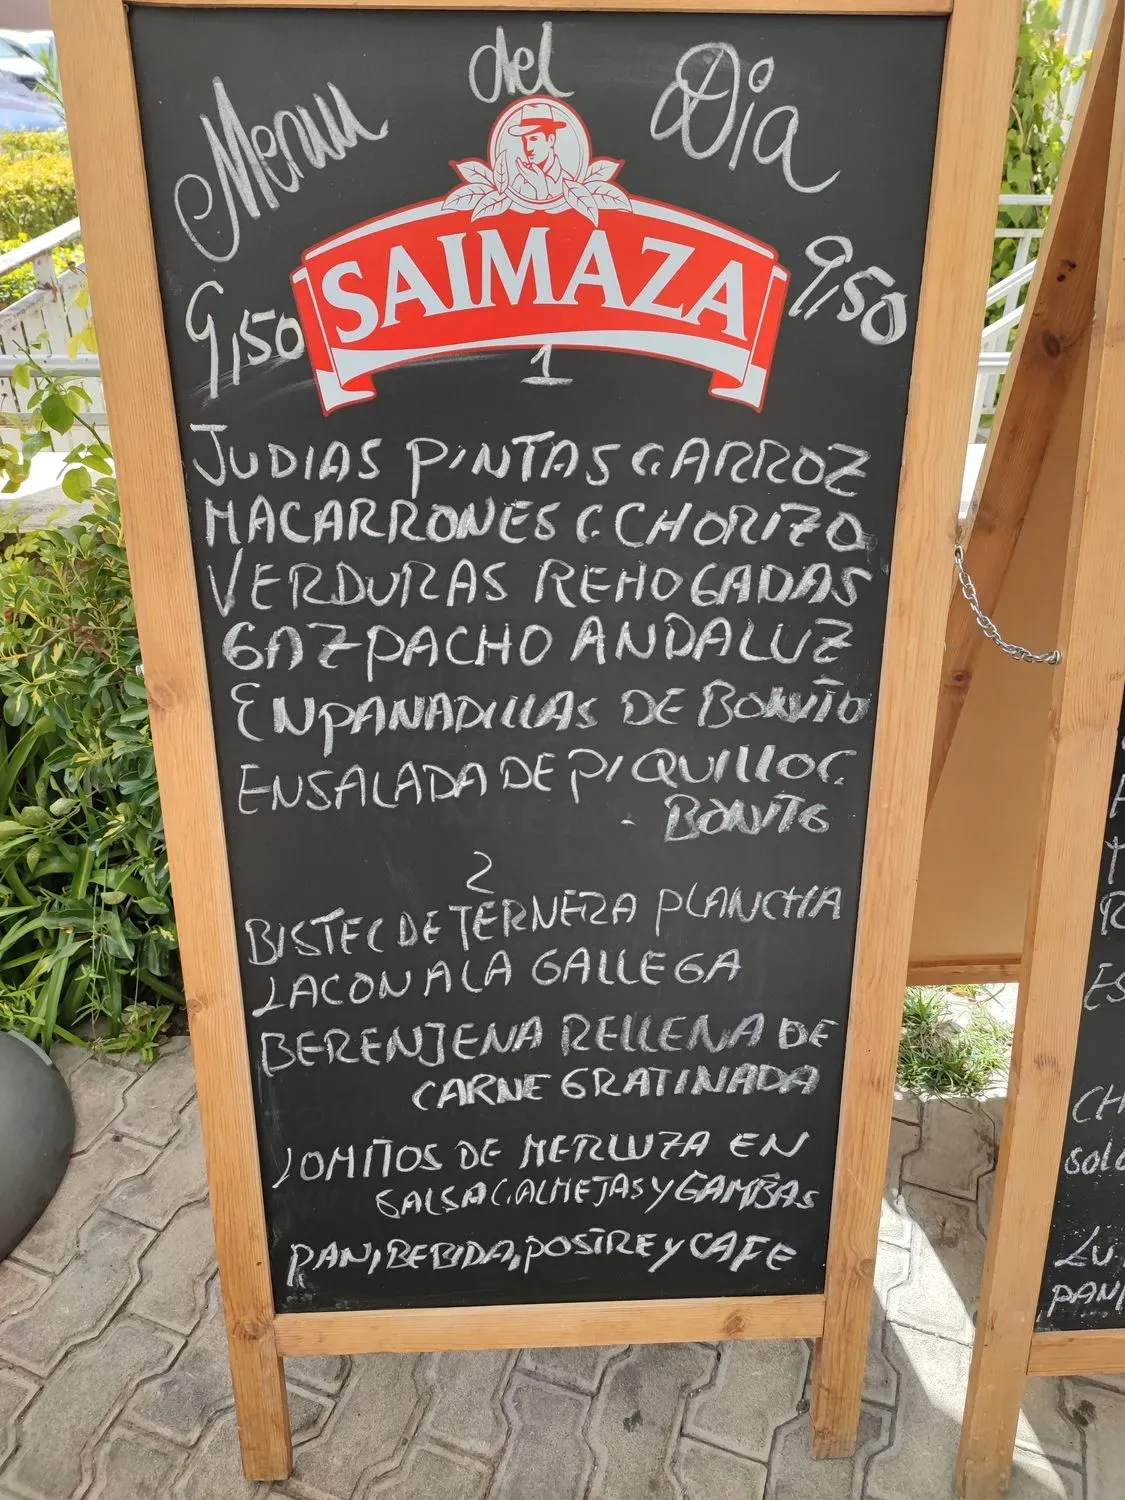 Menu del Dia
SAIMAZA
9,50 9,50
1
JUDIAS PINTAS C.ARROZ
MACARRONES C.CHORIZO
VERDURAS REHOGADAS
GAZPACHO ANDALUZ
ENPANADILLAS DE BONITO
ENSALADA DE PIQUILLO C.
BONITO
2
BISTEC DE TERNERA PLANCHA
LACON A LA GALLEGA
BERENJENA RELLENA DE
CARNE GRATINADA
LOMITOS DE MERLUZA EN
SALSA C.ALMEJAS Y GAMBAS
PAN, BEBIDA, POSTRE Y CAFE
ES
CH
SOLO
LU
PAN